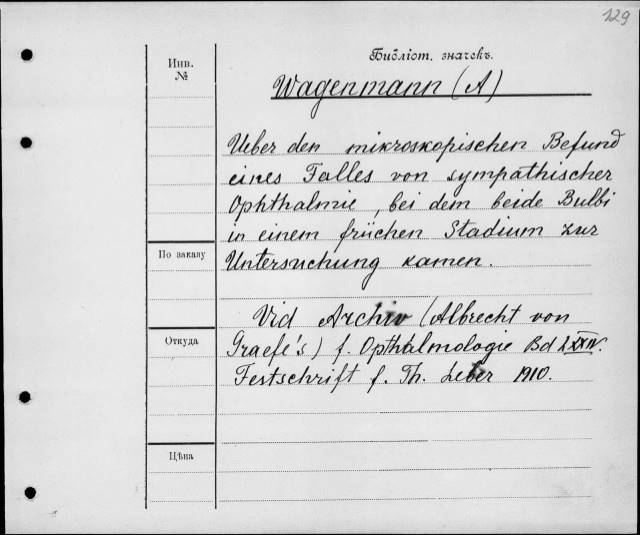 129
Библіот. значекъ.
Инв.
№
Wagenmann (A)
Ueber den mikroskopischen Befund
eines Falles von sympathischer
Ophthalmie, bei dem beide Bulbi
in einem früchen Stadium zur
Untersuchung kamen.
По заказу
Vid Archiv (Albrecht von
Graefe's) f. Opthalmologie Bd LXXIV.
Festschrift f. Th. Leber 1910.
Откуда
Цѣна